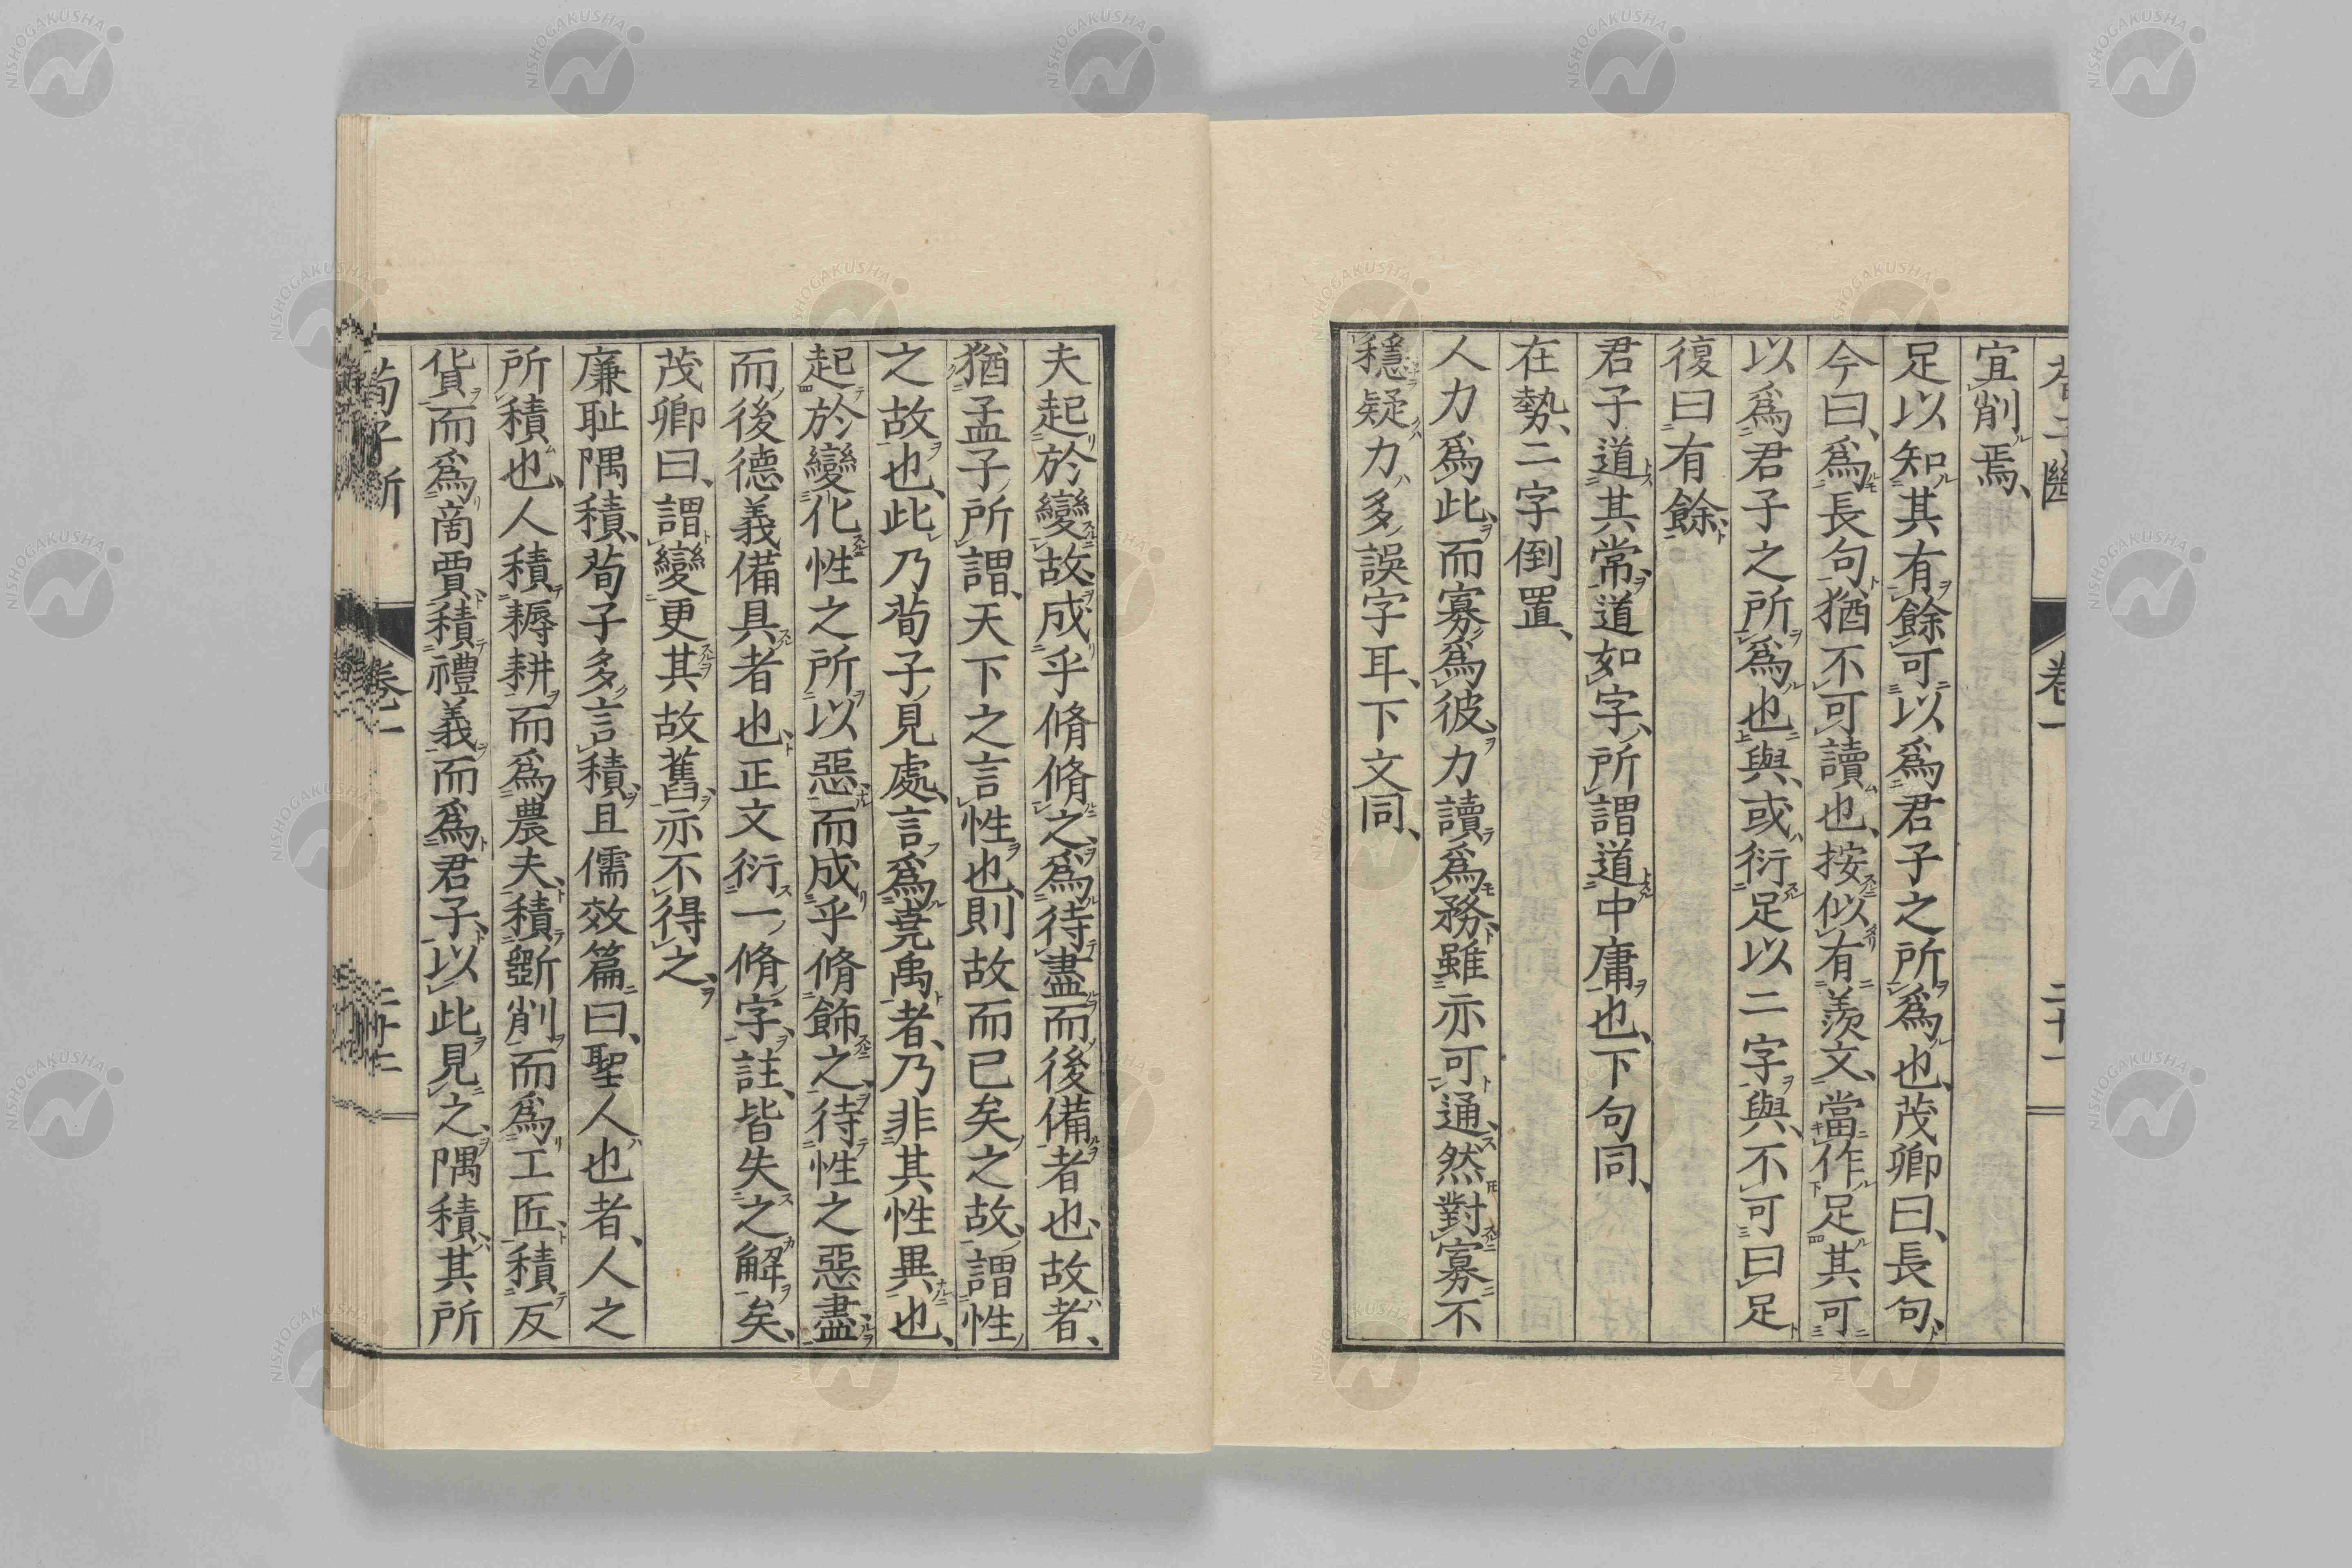 宜削焉、
足以知其有餘可以爲君子之所爲也、茂卿曰、長句、
今曰、爲長句、猶不可讀也、按似有羨文、當作足其可
以爲君子之所爲也與、或衍足以二字與、不可曰足
復曰有餘、
君子道其常、道如字、所謂道中庸也、下句同、
在勢、二字倒置、
人力爲此、而寡爲彼、力讀爲務、雖亦可通、然對寡不
穩、疑力、多誤字耳、下文同、
夫起於變故、成乎脩脩之、爲待盡而後備者也、故者、
猶孟子所謂、天下之言性也、則故而已矣之故、謂性
之故也、此乃荀子見處、言爲堯禹者、乃非其性異也、
起於變化性之所以惡、而成乎脩飾之、待性之惡盡、
而後德義備具者也、正文衍一脩字、註、皆失之解矣、
茂卿曰、謂變更其故舊、亦不得之、
廉耻隅積、荀子多言積、且儒效篇曰、聖人也者、人之
所積也、人積耨耕而爲農夫、積斲削而爲工匠、積反
貨而爲商賈、積禮義而爲君子、以此見之、隅積、其所
荀子斷
卷二